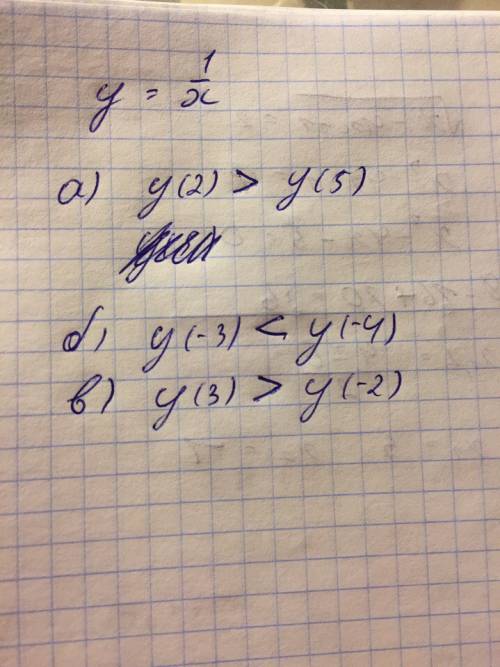 y = 1/x
а) y(2) > y(5)
б) y(-3) < y(-4)
в) y(3) > y(-2)